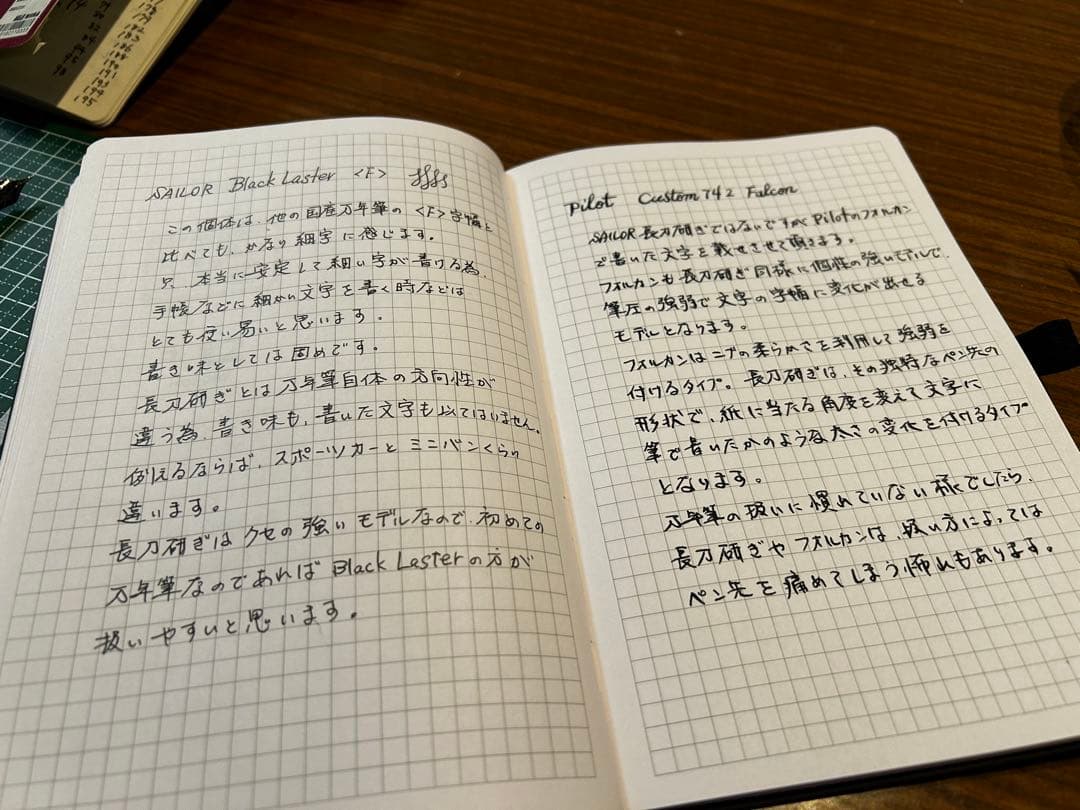 SAILOR Black Laster <F>
この個体は、他の国産万年筆の<F>字幅と
比べても、かなり細字に感じます。
只、本当に安定して細い字が書ける為、
手帳などに細かい文字を書く時などは
とても使い易いと思います。
書き味としては固めです。
長刀研ぎとは万年筆自体の方向性が
違う為、書き味も、書いた文字も似てはいません。
例えるならば、スポーツカーとミニバンくらい
違います。
長刀研ぎはクセの強いモデルなので、初めての
万年筆なのであれば Black Lasterの方が
扱いやすいと思います。
Pilot Custom 742 Falcon
SAILOR長刀研ぎではないですがPilotのフォルカン
で書いた文字を載せさせて頂きます。
フォルカンも長刀研ぎ同様に個性の強いモデルで、
筆圧の強弱で文字の字幅に変化が出せる
モデルとなります。
フォルカンはニブの柔らかさを利用して強弱を
付けるタイプ。長刀研ぎは、その独特なペン先の
形状で、紙に当たる角度を変えて文字に
筆で書いたかのような太さの変化を付けるタイプ
となります。
万年筆の扱いに慣れていない様でしたら、
長刀研ぎやフォルカンは、扱い方によっては
ペン先を痛めてしまう怖れもあります。
179
182
183
186
188
190
191
193
194
195